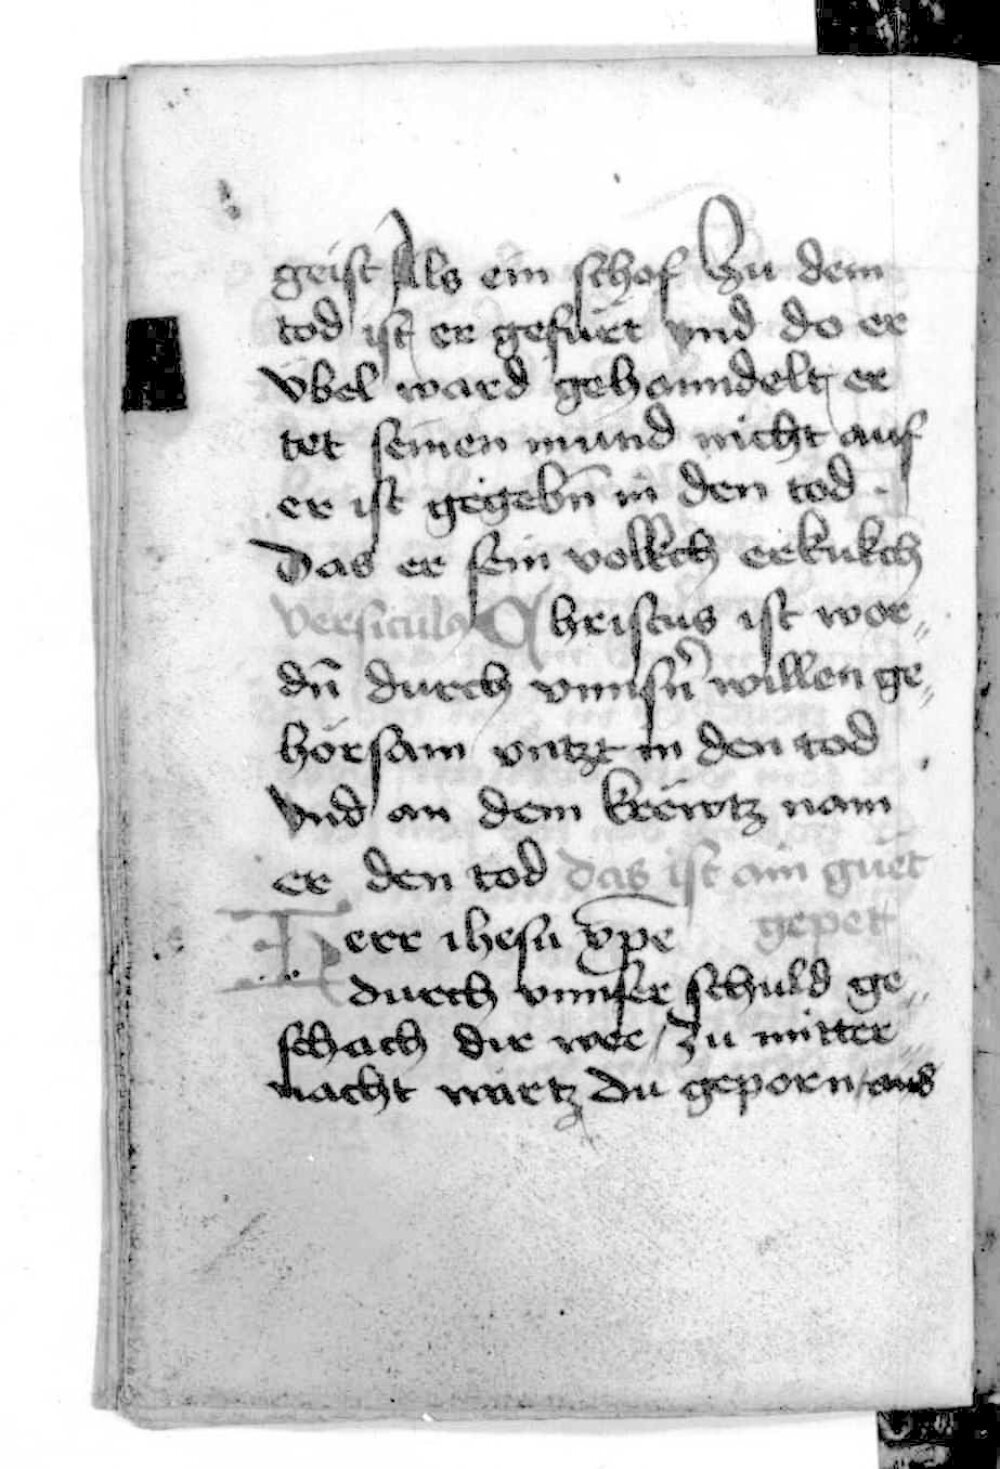 geist Als ein schof Zu dem
tod ist er gefürt vnd do er
vbel ward gehanndelt er
tet seinen mund nicht auf
er ist gegebn̄ in den tod ·
das er sein vollkch erkukch
versiculus Christus ist wor„
dn̄ durch vnnsn̄ willen ge„
horsam vntzt in den tod
vnd an dem krewtz nam
er den tod das ist ain guet
gepet
Herr ihesu xpe
durch vnnser schuld ge„
schach dir wee / Zu mitter
nacht wartz du geporn / aus